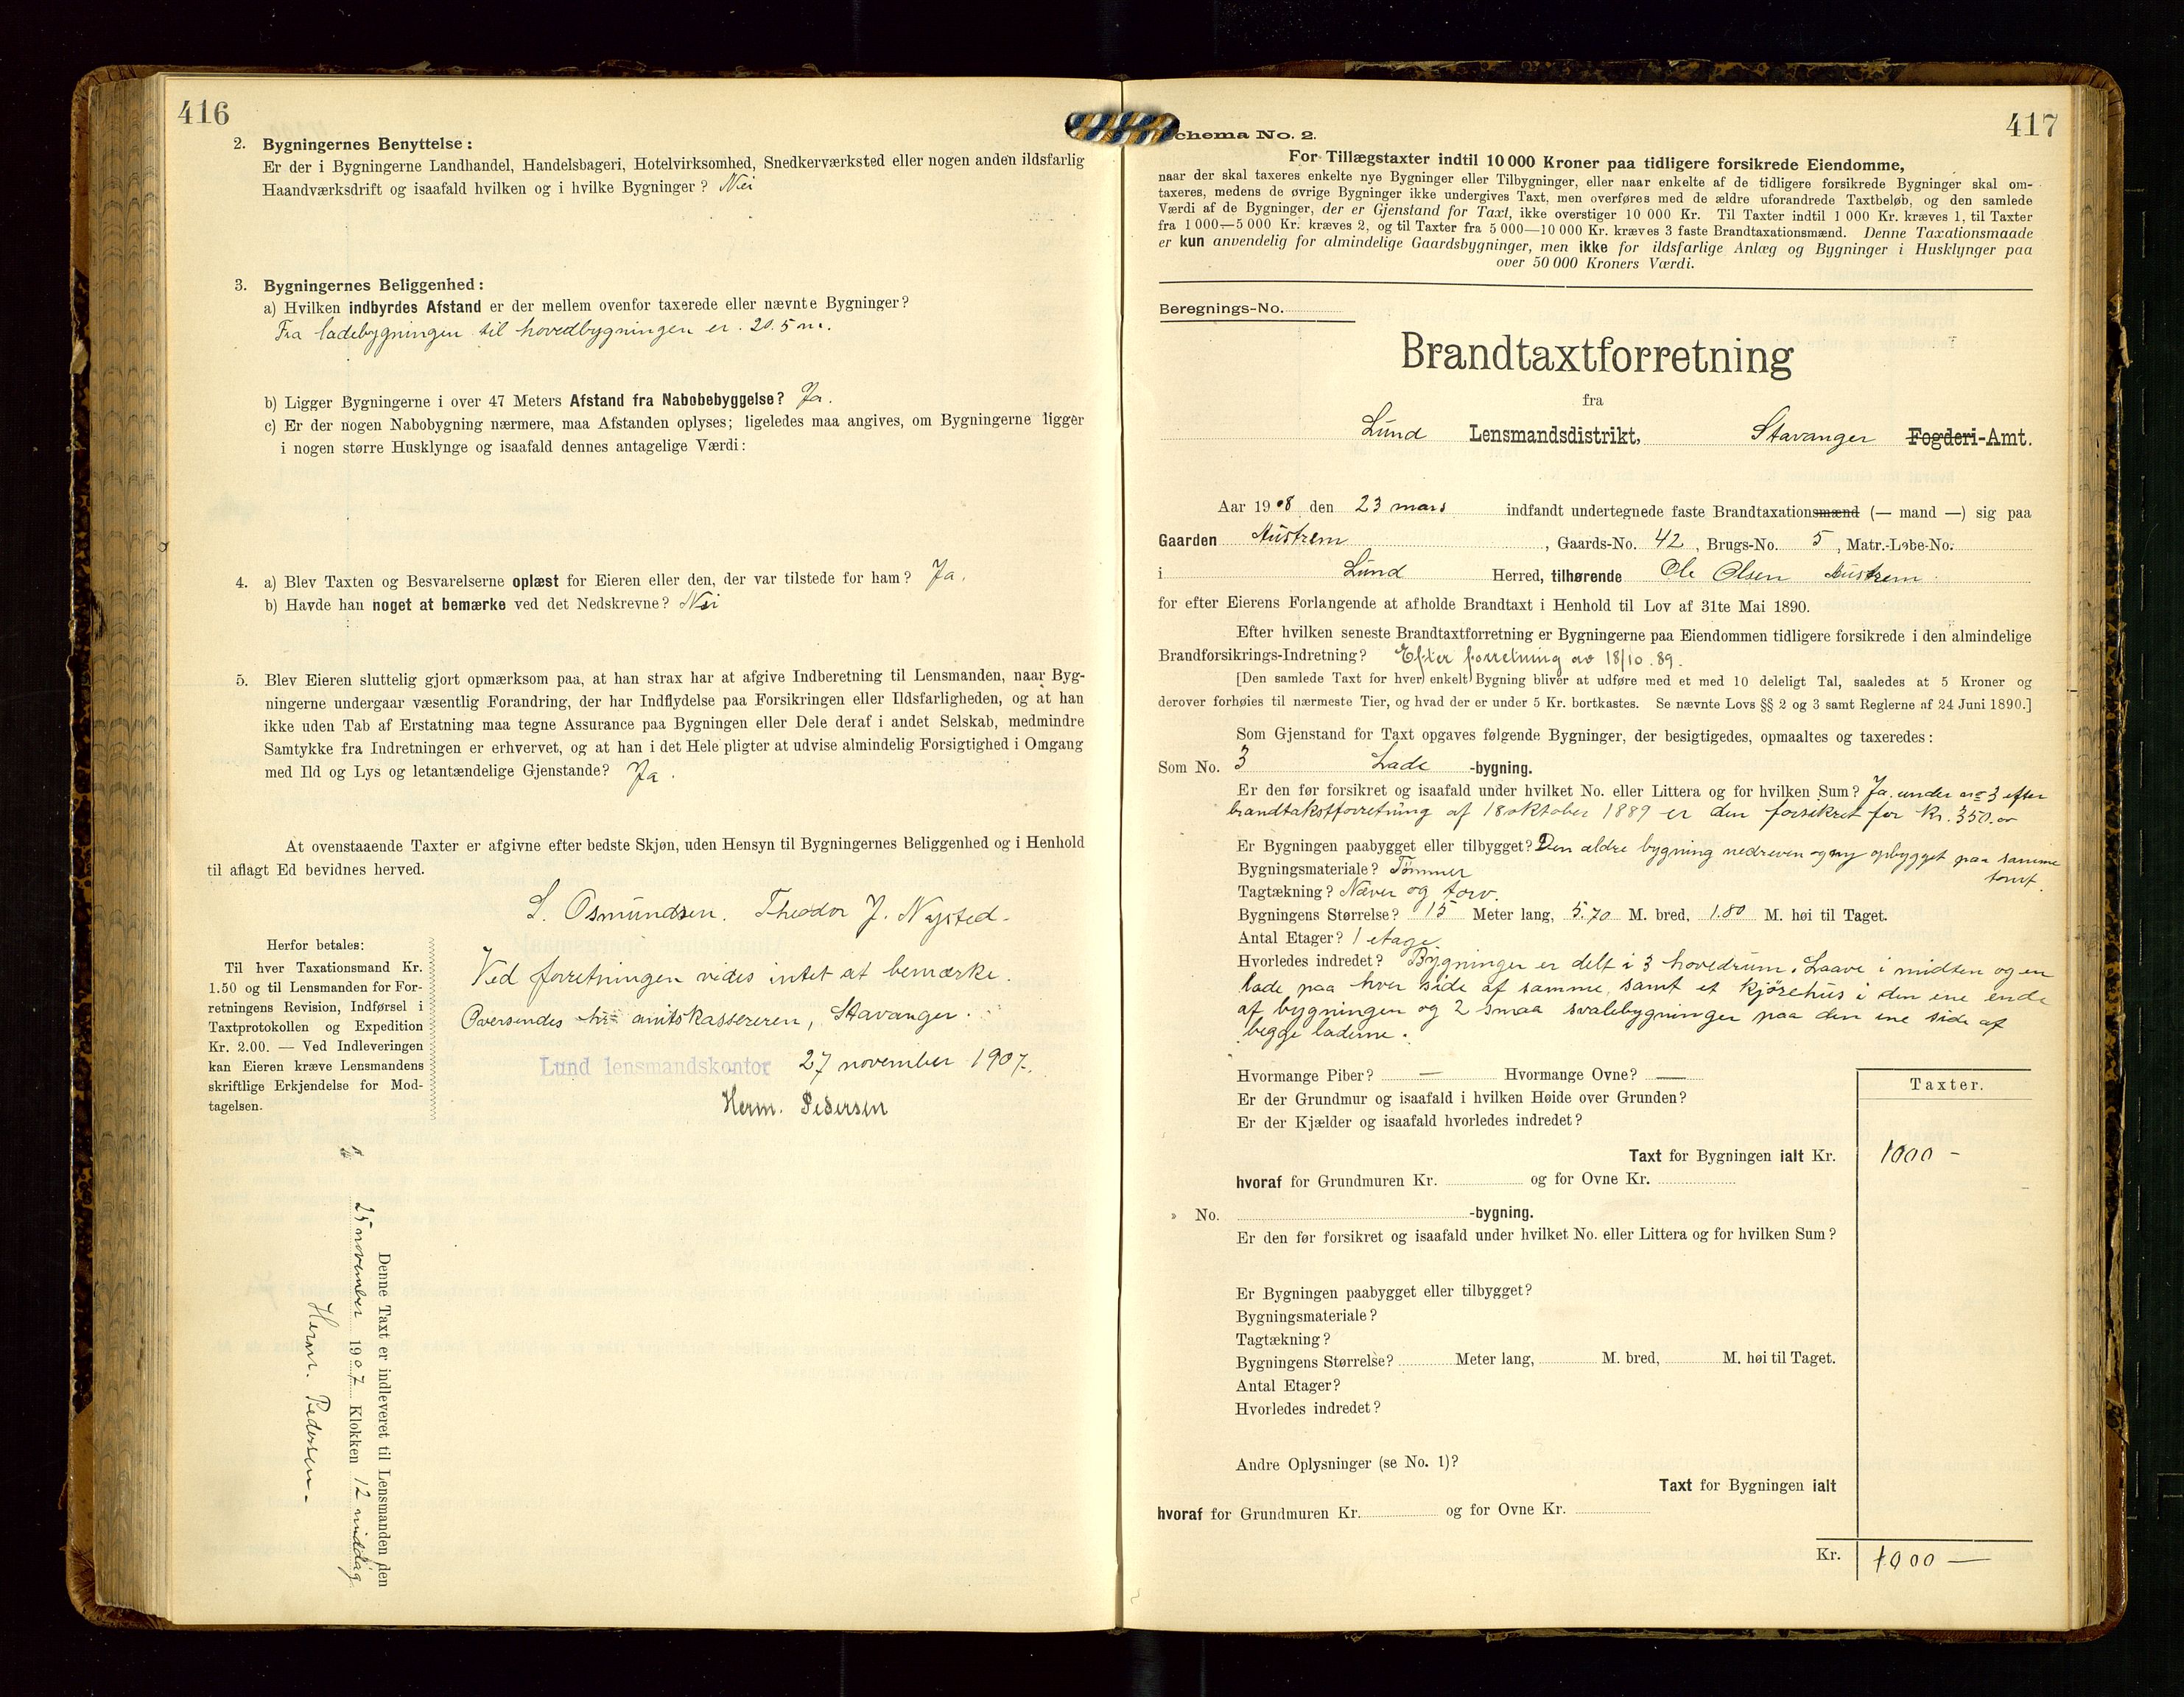 416
2. Bygningernes Benyttelse:
Er der i Bygningerne Landhandel, Handelsbageri, Hotelvirksomhed, Snedkerværksted eller nogen anden ildsfarlig
Haandværksdrift og isaafald hvilken og i hvilke Bygninger? Nei
3. Bygningernes Beliggenhed:
a) Hvilken indbyrdes Afstand er der mellem ovenfor taxerede eller nævnte Bygninger?
Fra ladebygningen til hovedbygningen er. 20.5 m.
b) Ligger Bygningerne i over 47 Meters Afstand fra Nabobebyggelse? Ja.
c) Er der nogen Nabobygning nærmere, maa Afstanden oplyses; ligeledes maa angives, om Bygningerne ligger
i nogen større Husklynge og isaafald dennes antagelige Værdi:
4. a) Blev Taxten og Besvarelserne oplæst for Eieren eller den, der var tilstede for ham? Ja.
b) Havde han noget at bemærke ved det Nedskrevne? Nei
5. Blev Eieren sluttelig gjort opmærksom paa, at han strax har at afgive Indberetning til Lensmanden, naar Byg-
ningerne undergaar væsentlig Forandring, der har Indflydelse paa Forsikringen eller Ildsfarligheden, og at han
ikke uden Tab af Erstatning maa tegne Assurance paa Bygningen eller Dele deraf i andet Selskab, medmindre
Samtykke fra Indretningen er erhvervet, og at han i det Hele pligter at udvise almindelig Forsigtighed i Omgang
med Ild og Lys og letantændelige Gjenstande? Ja.
At ovenstaaende Taxter er afgivne efter bedste Skjøn, uden Hensyn til Bygningernes Beliggenhed og i Henhold
til aflagt Ed bevidnes herved.
L. Osmundsen. Theodor J. Nysted.
Herfor betales:
Til hver Taxationsmand Kr.
1.50 og til Lensmanden for For-
retningens Revision, Indførsel i
Taxtprotokollen og Expedition
Kr. 2.00. — Ved Indleveringen
kan Eieren kræve Lensmandens
skriftlige Erkjendelse for Mod-
tagelsen.
Ved forretningen vides intet at bemærke.
Oversendes hr. amtskassereren, Stavanger.
Lund lensmandskontor 27 november 1907.
Herm. Pedersen
Denne Taxt er indleveret til Lensmanden den
25 november 1907 Klokken 12 middag
Herm. Pedersen.
417
chema No. 2.
For Tillægstaxter indtil 10 000 Kroner paa tidligere forsikrede Eiendomme,
naar der skal taxeres enkelte nye Bygninger eller Tilbygninger, eller naar enkelte af de tidligere forsikrede Bygninger skal om-
taxeres, medens de øvrige Bygninger ikke undergives Taxt, men overføres med de ældre uforandrede Taxtbeløb, og den samlede
Værdi af de Bygninger, der er Gjenstand for Taxt, ikke overstiger 10 000 Kr. Til Taxter indtil 1 000 Kr. kræves 1, til Taxter
fra 1 000—5 000 Kr. kræves 2, og til Taxter fra 5 000—10 000 Kr. kræves 3 faste Brandtaxationsmænd. Denne Taxationsmaade
er kun anvendelig for almindelige Gaardsbygninger, men ikke for ildsfarlige Anlæg og Bygninger i Husklynger paa
over 50 000 Kroners Værdi.
Beregnings-No.
Brandtaxtforretning
fra
Lund Lensmandsdistrikt, Stavanger Fogderi-Amt.
Aar 1908 den 23 mars indfandt undertegnede faste Brandtaxationsmænd (— mand —) sig paa
Gaarden Austrem, Gaards-No. 42, Brugs-No. 5, Matr.-Løbe-No.
i Lund Herred, tilhørende Ole Olsen Austrem
for efter Eierens Forlangende at afholde Brandtaxt i Henhold til Lov af 31te Mai 1890.
Efter hvilken seneste Brandtaxtforretning er Bygningerne paa Eiendommen tidligere forsikrede i den almindelige
Brandforsikrings-Indretning? Efter forretning av 18/10.89.
[Den samlede Taxt for hver enkelt Bygning bliver at udføre med et med 10 deleligt Tal, saaledes at 5 Kroner og
derover forhøies til nærmeste Tier, og hvad der er under 5 Kr. bortkastes. Se nævnte Lovs §§ 2 og 3 samt Reglerne af 24 Juni 1890.]
Som Gjenstand for Taxt opgaves følgende Bygninger, der besigtigedes, opmaaltes og taxeredes:
Som No. 3 Lade -bygning.
Er den før forsikret og isaafald under hvilket No. eller Littera og for hvilken Sum? Ja. under no 3 efter
brandtakstforretning af 18 oktober 1889 er den forsikret for kr. 350.00
Er Bygningen paabygget eller tilbygget? Den ældre bygning nedreven og ny opbygget paa samme
tomt.
Bygningsmateriale? Tømmer
Tagtækning? Næver og torv.
Bygningens Størrelse? 15 Meter lang, 5.70 M. bred, 1.80 M. høi til Taget.
Antal Etager? 1 etage
Hvorledes indredet? Bygninger er delt i 3 hovedrum. Laave i midten og en
lade paa hver side af samme, samt et kjørehus i den ene ende
af bygningen og 2 smaa svalebygninger paa den ene side af
begge laderne.
Hvormange Piber? — Hvormange Ovne? —
Er der Grundmur og isaafald i hvilken Høide over Grunden?
Er der Kjælder og isaafald hvorledes indredet?
Taxter.
Taxt for Bygningen ialt Kr. 1000 -
hvoraf for Grundmuren Kr. og for Ovne Kr.
» No. -bygning.
Er den før forsikret og isaafald under hvilket No. eller Littera og for hvilken Sum?
Er Bygningen paabygget eller tilbygget?
Bygningsmateriale?
Tagtækning?
Bygningens Størrelse? Meter lang, M. bred, M. høi til Taget.
Antal Etager?
Hvorledes indredet?
Andre Oplysninger (se No. 1)?
Taxt for Bygningen ialt
hvoraf for Grundmuren Kr. og for Ovne Kr.
Kr. 1000 —